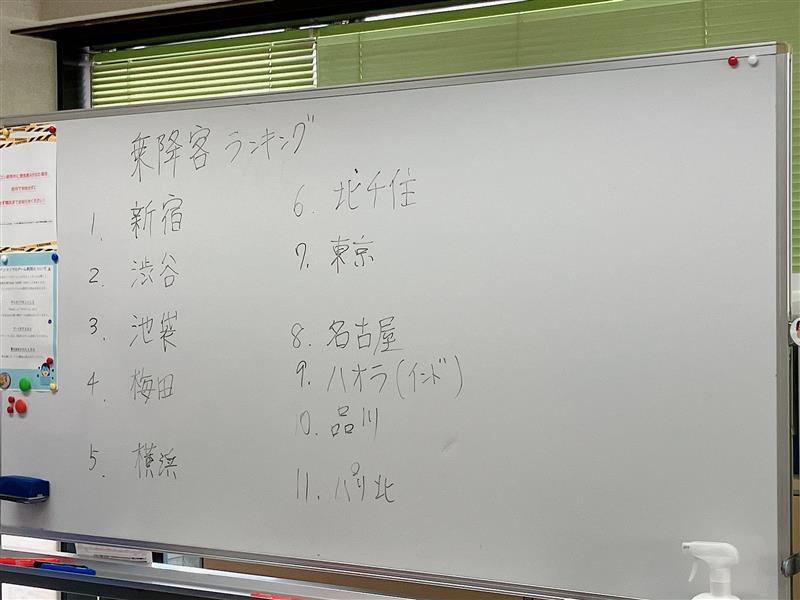 乗降客ランキング
1. 新宿
2. 渋谷
3. 池袋
4. 梅田
5. 横浜
6. 北千住
7. 東京
8. 名古屋
9. ハオラ(インド)
10. 品川
11. パリ北